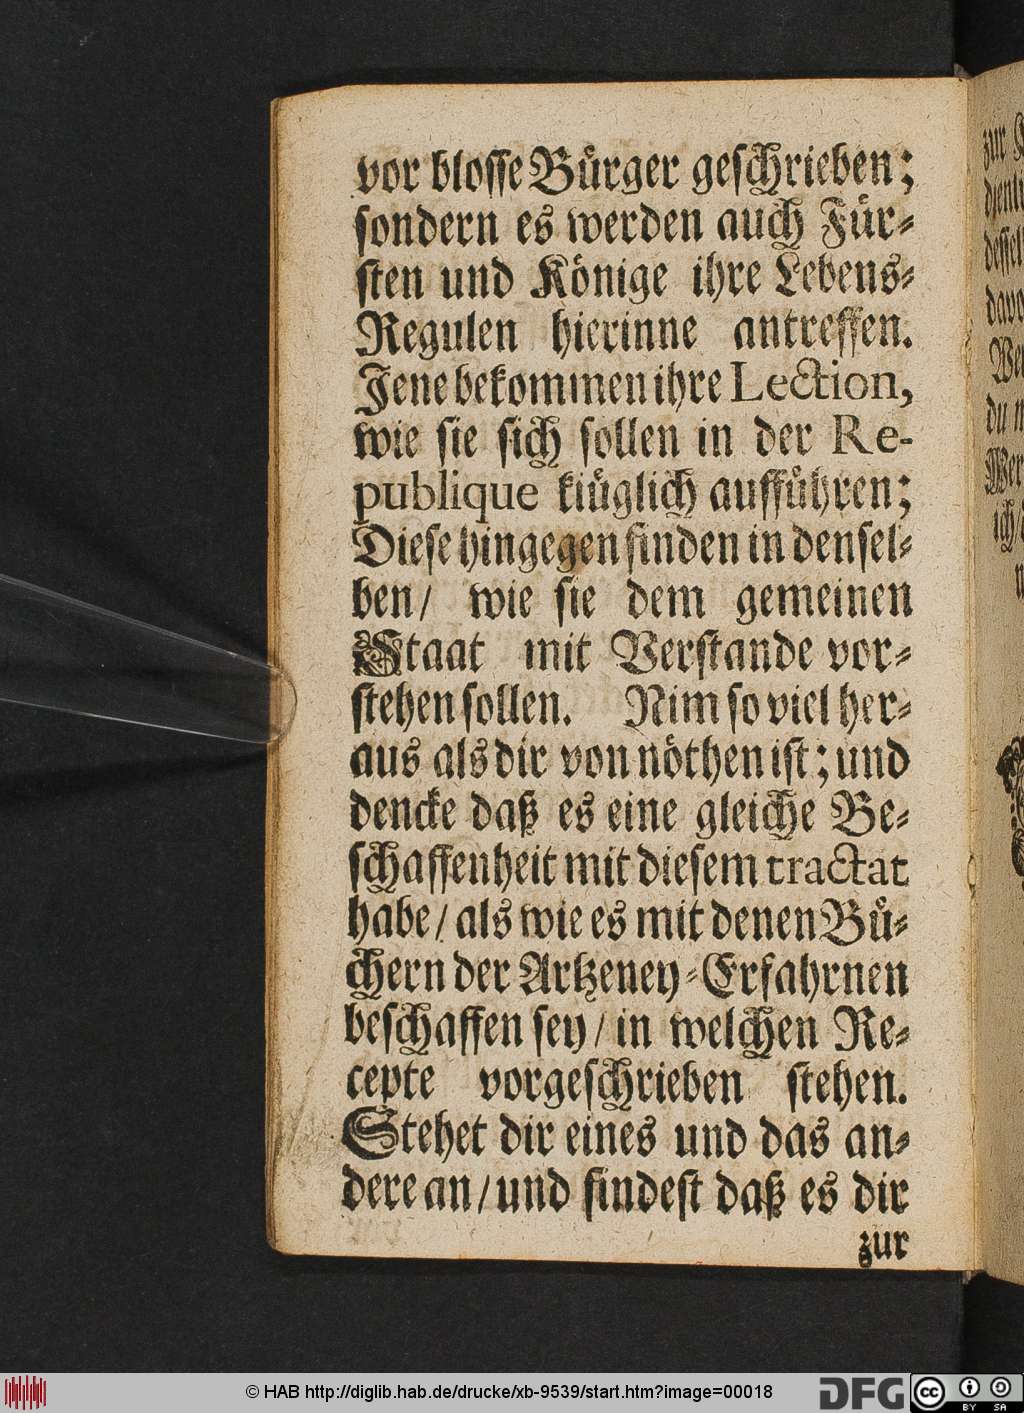 vor blosse Bürger geschrieben;
sondern es werden auch Für-
sten und Könige ihre Lebens-
Regulen hierinne antreffen.
Jene bekommen ihre Lection,
wie sie sich sollen in der Re-
publique klüglich aufführen;
Diese hingegen finden in densel-
ben/ wie sie dem gemeinen
Staat mit Verstande vor-
stehen sollen. Nim so viel her-
aus als dir von nöthen ist; und
dencke daß es eine gleiche Be-
schaffenheit mit diesem tractat
habe/ als wie es mit denen Bü-
chern der Artzeney-Erfahrnen
beschaffen sey/ in welchen Re-
cepte vorgeschrieben stehen.
Stehet dir eines und das an-
dere an/ und findest daß es dir
zur
© HAB http://diglib.hab.de/drucke/xb-9539/start.htm?image=00018
DFG
cc BY SA